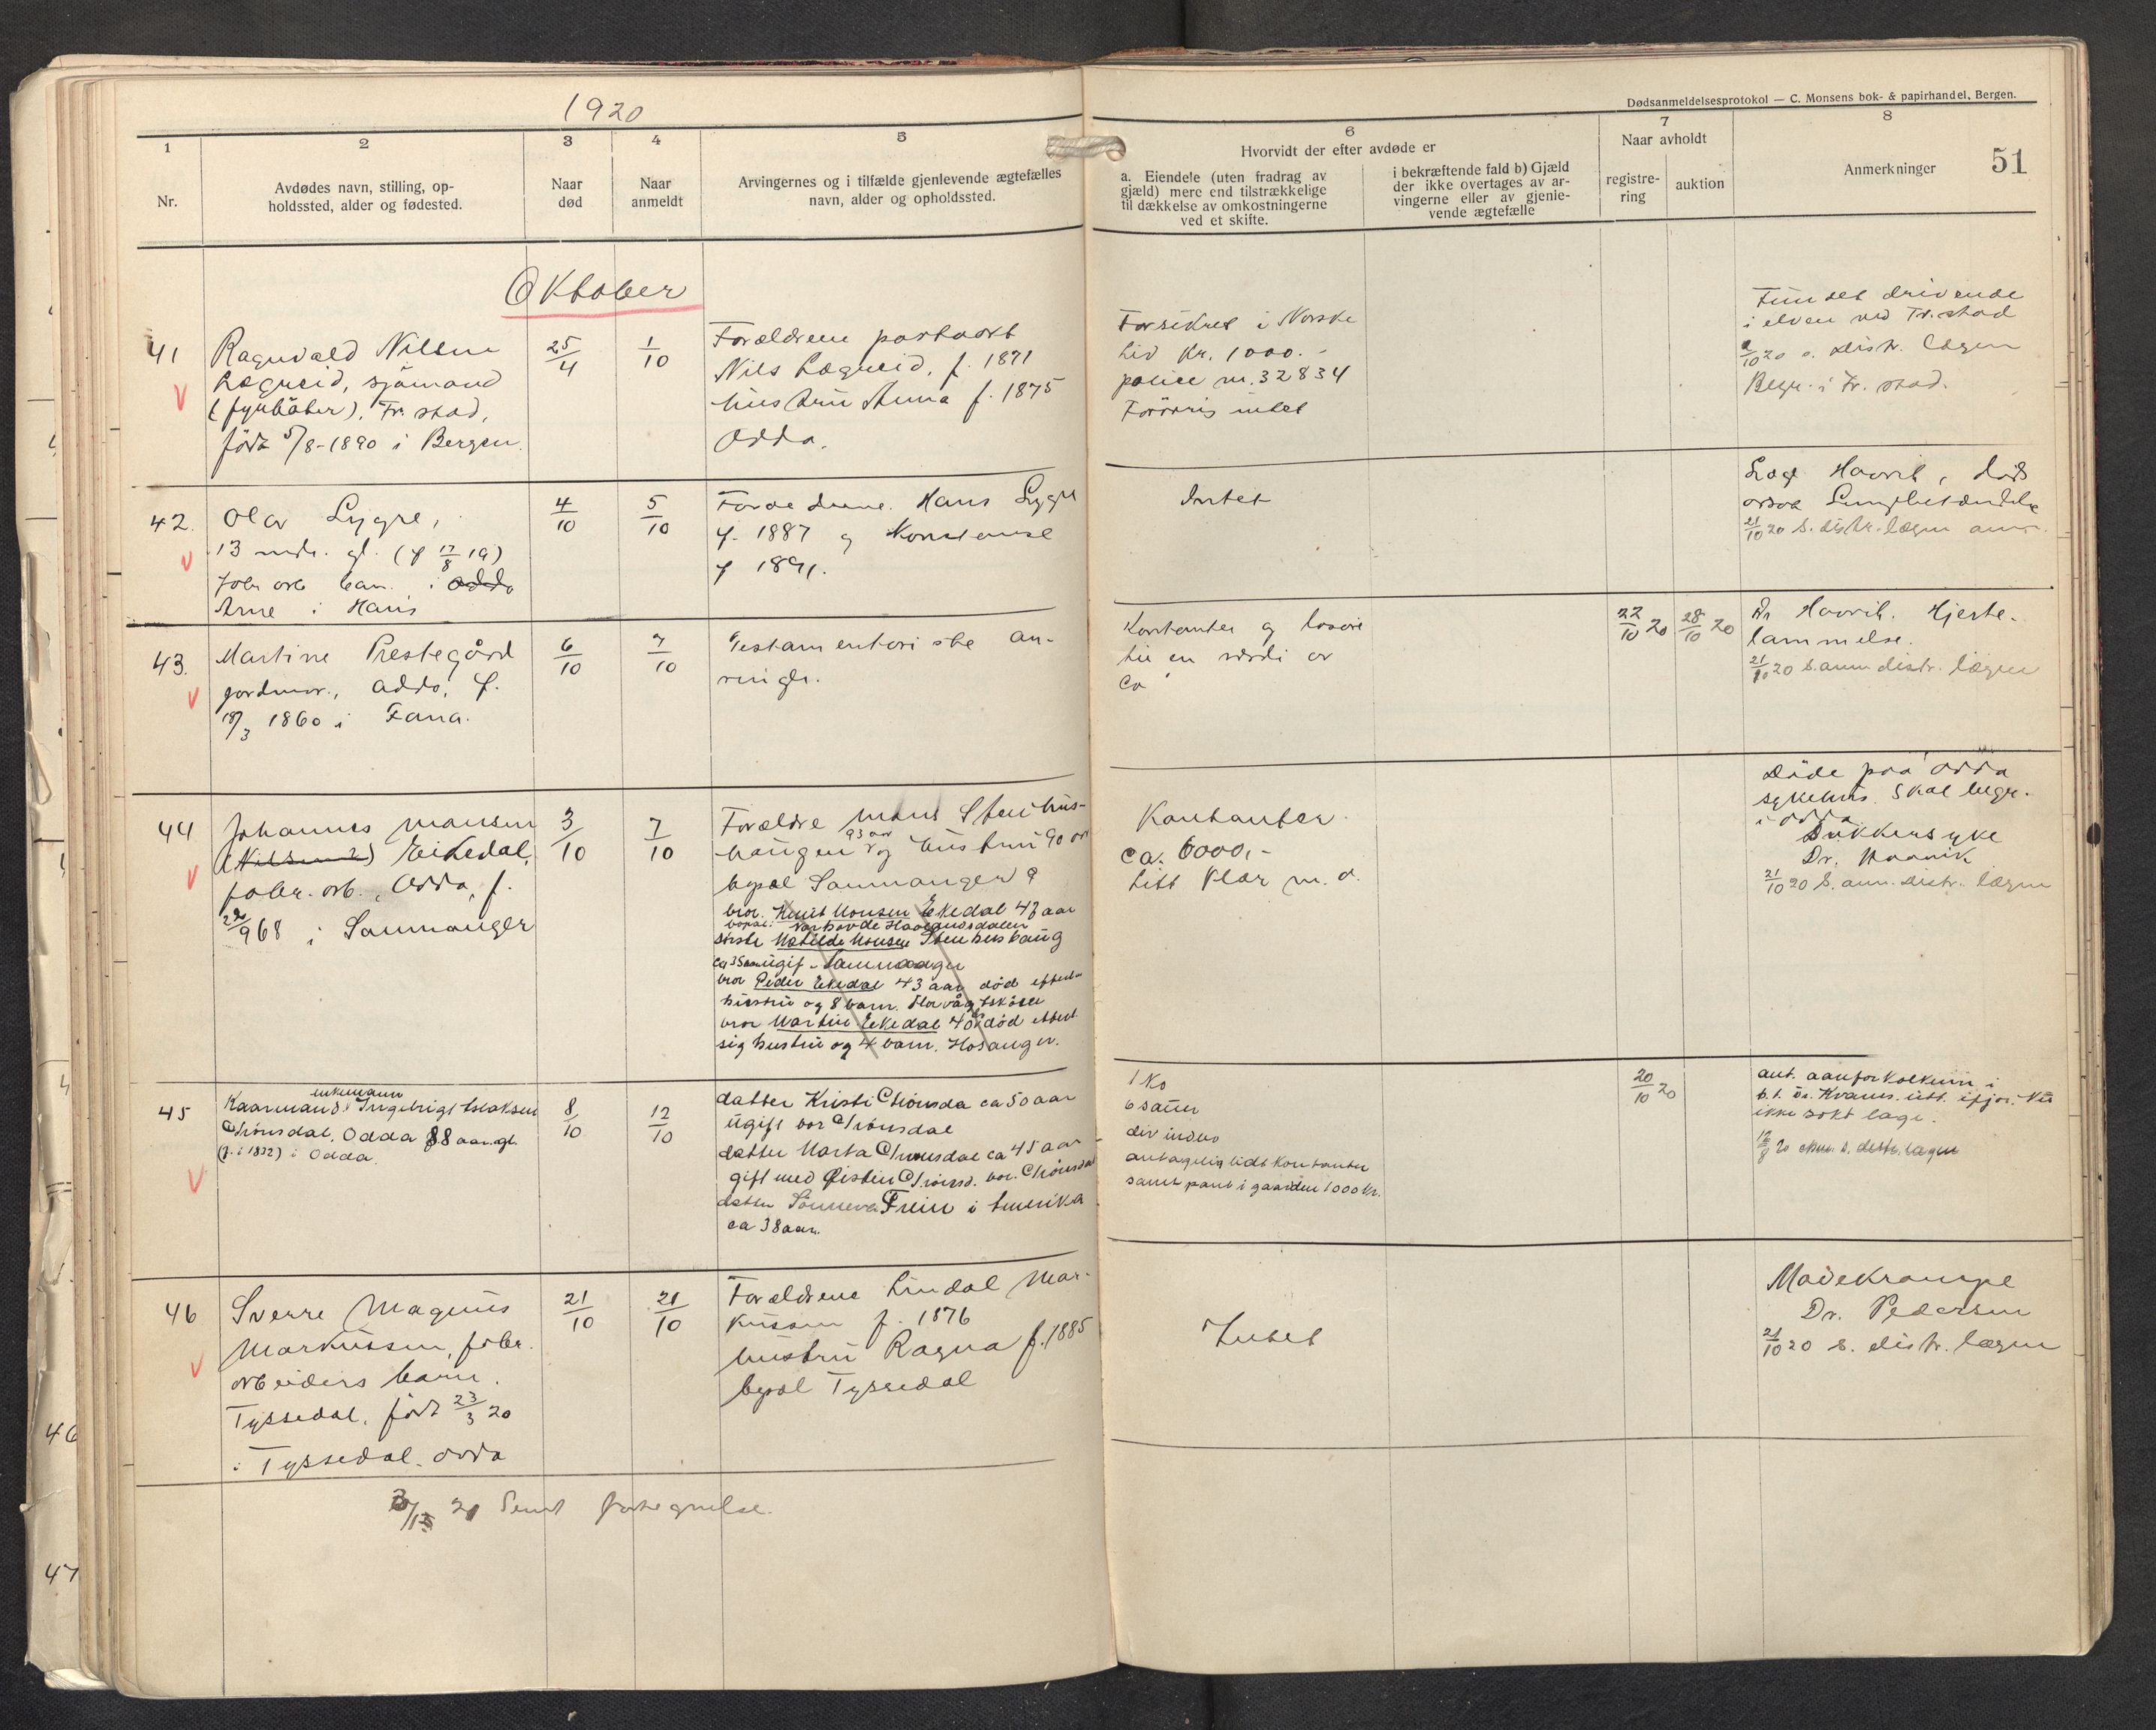 1920
Dødsanmeldelsesprotokol — C. Monsens bok- & papirhandel, Bergen.
51
1
Nr.
2
Avdødes navn, stilling, op-
holdssted, alder og fødested.
3
Naar
død
4
Naar
anmeldt
5
Arvingernes og i tilfælde gjenlevende ægtefælles
navn, alder og opholdssted.
6
Hvorvidt der efter avdøde er
a. Eiendele (uten fradrag av
gjæld) mere end tilstrækkelige
til dækkelse av omkostningerne
ved et skifte.
i bekræftende fald b) Gjæld
der ikke overtages av ar-
vingerne eller av gjenle-
vende ægtefælle
7
Naar avholdt
registre-
ring
auktion
8
Anmerkninger
Oktober
41
Ragnvald Nilsen
Lægreid, sjömand
(fyrböter), Fr. stad,
född 5/8-1890 i Bergen.
25/4
1/10
Forældrene
Nils Lægreid, f. 1871
hustru Anna f. 1875
Odda.
Forsikret i Norske
Liv Kr. 1000.-
police nr. 32834
Forövrig intet
Fundet drivende
i elven ved Fr. stad
/10 20 s. distr. lægen
Begr. i Fr. stad.
42.
Olav Lygre,
13 mdr. gl. (f 17/8 19)
fabr arb barn i Odda
Arne i Haus
4/10
5/10
Foreldrene Hans Lygre
f. 1887 og Konstanse
f 1891.
Intet
Læg Haavik, döds
orsak Lungbetændelse
21/10 20 s. distr. lægen anm.
43.
Martine Prestegård
jordmor, Odda, f.
18/3 1860 i Fana.
6/10
7/10
Testamentariske ar-
vinger.
Kontanter og lösöre
til en værdi av
Ca
22/10 20
28/10 20
Dr Haavik. Hjerte-
lammelse.
21/10 20 s. anm distr. lægen
44
Johannes Monsen
(Nilsen ?) Eikedal,
fabr. arb., Odda, f.
22/9 68 i Samnanger
3/10
7/10
Forældre Mons Stenhus-
haugen 93 aar og hustru 90 aar
bopæl Samnanger ?
bror. Knut Monsen Ekedal 47 aar
bopæl: Haalandsdalen
söster Matilde Monsen Stenhushaug
ca 35 aar ugif. Samnanger
bror Peder Ekedal 43 aar död efterl.
hustru og 8 barn. Askøen
bror Martin Eikedal 40 aar död efterl.
sig hustru og 4 barn. Hosanger.
Kontanter
ca. 6000,-
Litt klær m. v.
Döde paa Odda
sykehus. Skal begr.
i Odda
Sukkersyke
Dr. Haavik
21/10 20 s. anm. distr. lægen
45
enkemann
Kaarmand Ingebrigt Isaksen
Thönsdal, Odda 88 aar gl.
(f. i 1832) i Odda.
8/10
12/10
datter Kristi Thönsdal ca 50 aar
ugift bor Thönsdal
datter Marta Thönsdal ca 45 aar
gift med Østen Thönsd. bor. Thönsdal
datter Sönneva Freim i Amerika
ca 38 aar.
1 Ko
6 sauer
div indbo
antagelig lidt kontanter
samt pant i gaarden 1000 kr.
20/10 20
ant. aareforkalkning i
f. l. Dr. Kvams utt. ifjor. Nu
ikke sökt læge.
20 anm. s. distr. lægen
46
Sverre Magnus
Markussen, fabr.
arbeiders barn.
Tyssedal, född 23/3 20
i Tyssedal. Odda
21/10
21/10
Forældrene Lindal Mar-
kussen f. 1876
hustru Ragna f. 1885
bopæl Tyssedal
Intet
Mavekrampe
Dr. Pedersen
21/10 20 s. distr. lægen
20 Sendt fortegnelse.
46
47